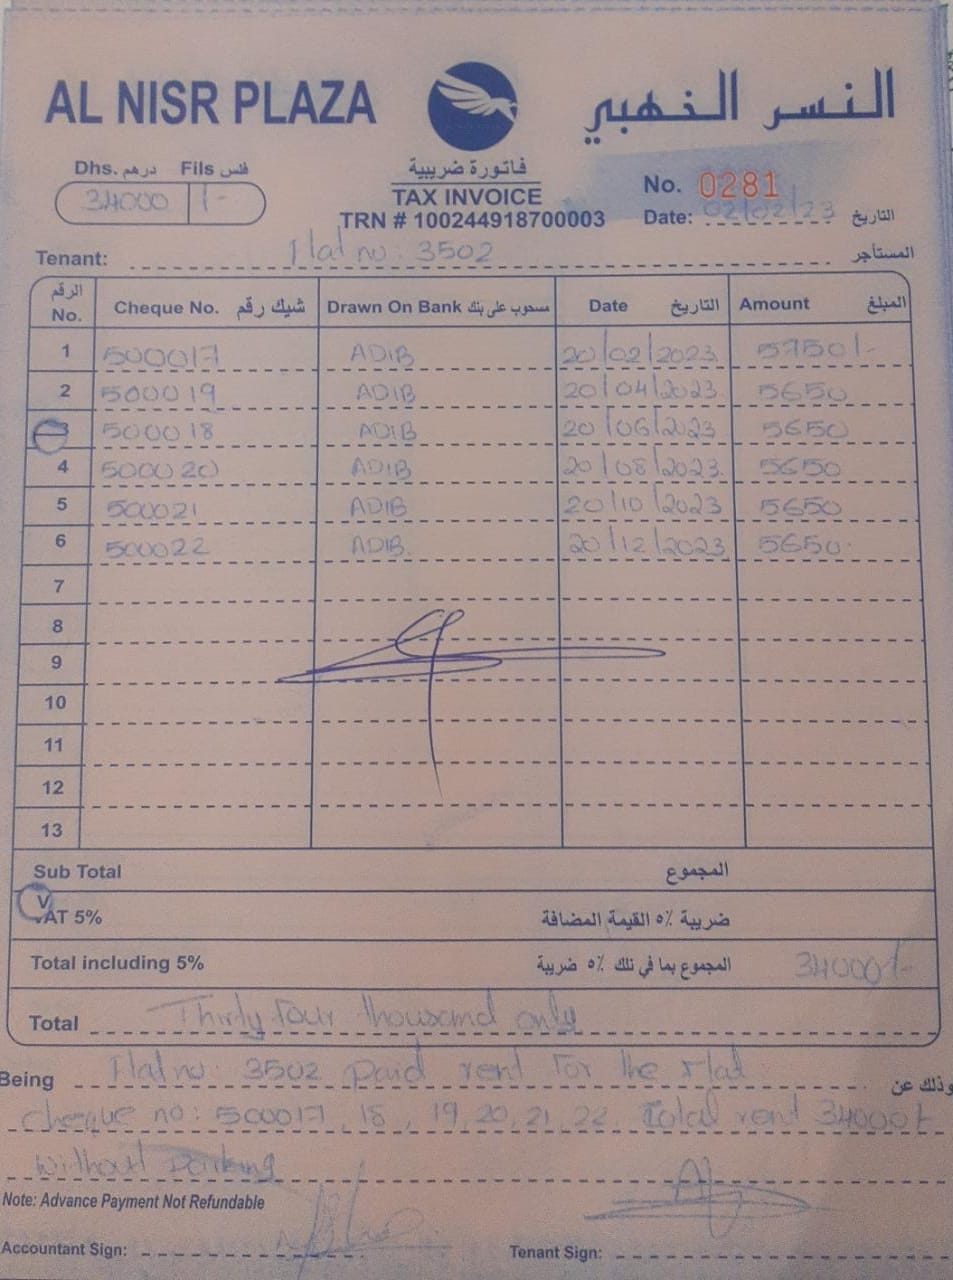 AL NISR PLAZA النسر الذهبي
Dhs. درهم Fils فلس
34000 /-
فاتورة ضريبية
TAX INVOICE
TRN # 100244918700003
No. 0281
Date: 02/02/23 التاريخ
Tenant: Flat no: 3502 المستأجر
الرقم No. Cheque No. شيك رقم Drawn On Bank مسحوب على بنك Date التاريخ Amount المبلغ
1 500017 ADIB 20/02/2023 5750/-
2 500019 ADIB 20/04/2023 5650
3 500018 ADIB 20/06/2023 5650
4 500020 ADIB 20/08/2023 5650
5 500021 ADIB 20/10/2023 5650
6 500022 ADIB 20/12/2023 5650
7
8
9
10
11
12
13
Sub Total المجموع
VAT 5% ضريبة ٥٪ القيمة المضافة
Total including 5% المجموع بما في تلك ٥٪ ضريبة 34000/-
Total Thirty four thousand only
Being Flat no: 3502 paid rent for the Flat وذلك عن
cheque no: 500017, 18, 19, 20, 21, 22. Total rent 34000/-
without parking
Note: Advance Payment Not Refundable
Accountant Sign: Tenant Sign: